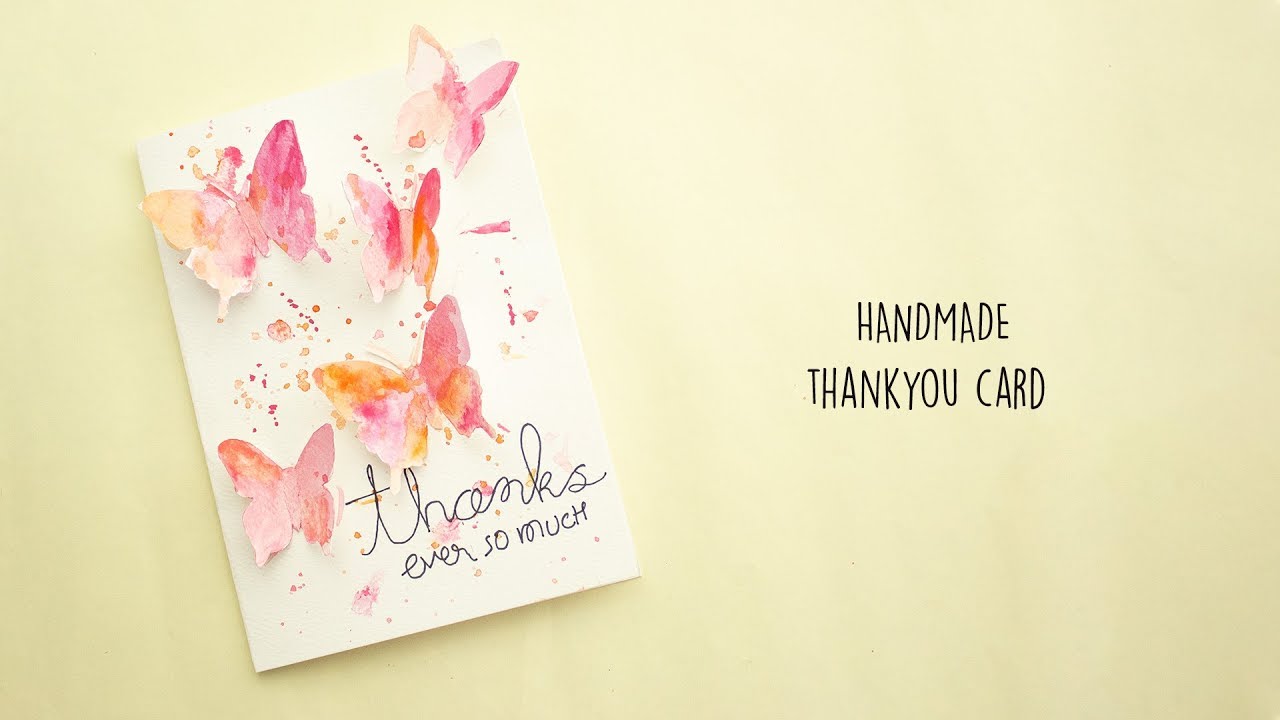 thanks
ever so much
HANDMADE
THANKYOU CARD